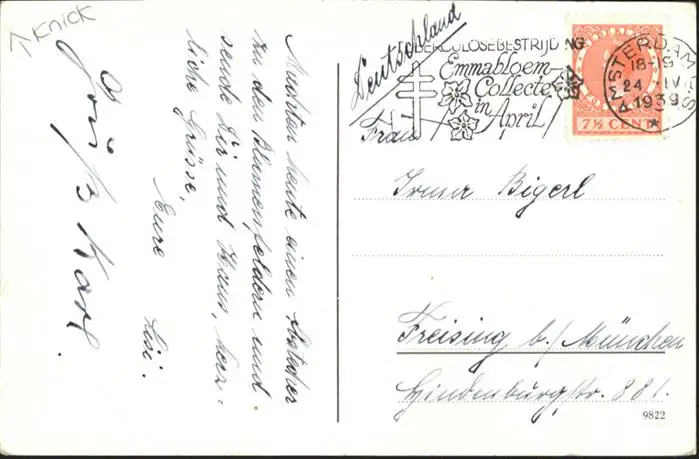 Knick
Machten heute einen Abstecher
zu den Blumenfeldern und
sende Dir und Hans, herz-
liche Grüsse,
Eure
Lisi.
Karl.
Deutschland
TUBERCULOSEBESTRIJDING
Emmabloem-
Collecte
in April
NEDERLAND
7½ CENT
AMSTERDAM
18-19
24 IV
1939
Frau
Irma Bigerl
Freising b./ München
Hindenburgstr. 881.
9822